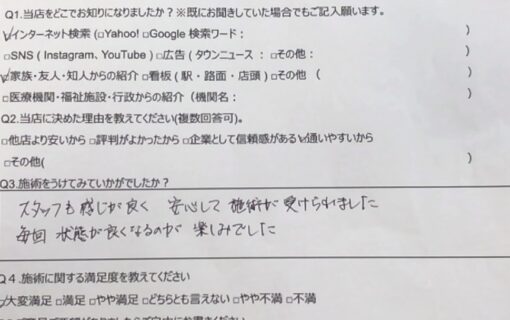 Q1.当店をどこでお知りになりましたか？※既にお聞きしていた場合でもご記入願います。
☑インターネット検索 (□Yahoo! □Google 検索ワード： )
□SNS ( Instagram、YouTube ) □広告 ( タウンニュース ： □その他： )
☑家族・友人・知人からの紹介 □看板 ( 駅・路面・店頭 ) □その他 ( )
□医療機関・福祉施設・行政からの紹介（機関名： )
Q2.当店に決めた理由を教えてください(複数回答可)。
□他店より安いから □評判がよかったから □企業として信頼感がある ☑通いやすいから
□その他( )
Q3.施術をうけてみていかがでしたか？
スタッフも感じが良く 安心して 施術が 受けられました
毎回 状態が良くなるのが 楽しみでした
Q４.施術に関する満足度を教えてください
☑大変満足 □満足 □やや満足 □どちらとも言えない □やや不満 □不満